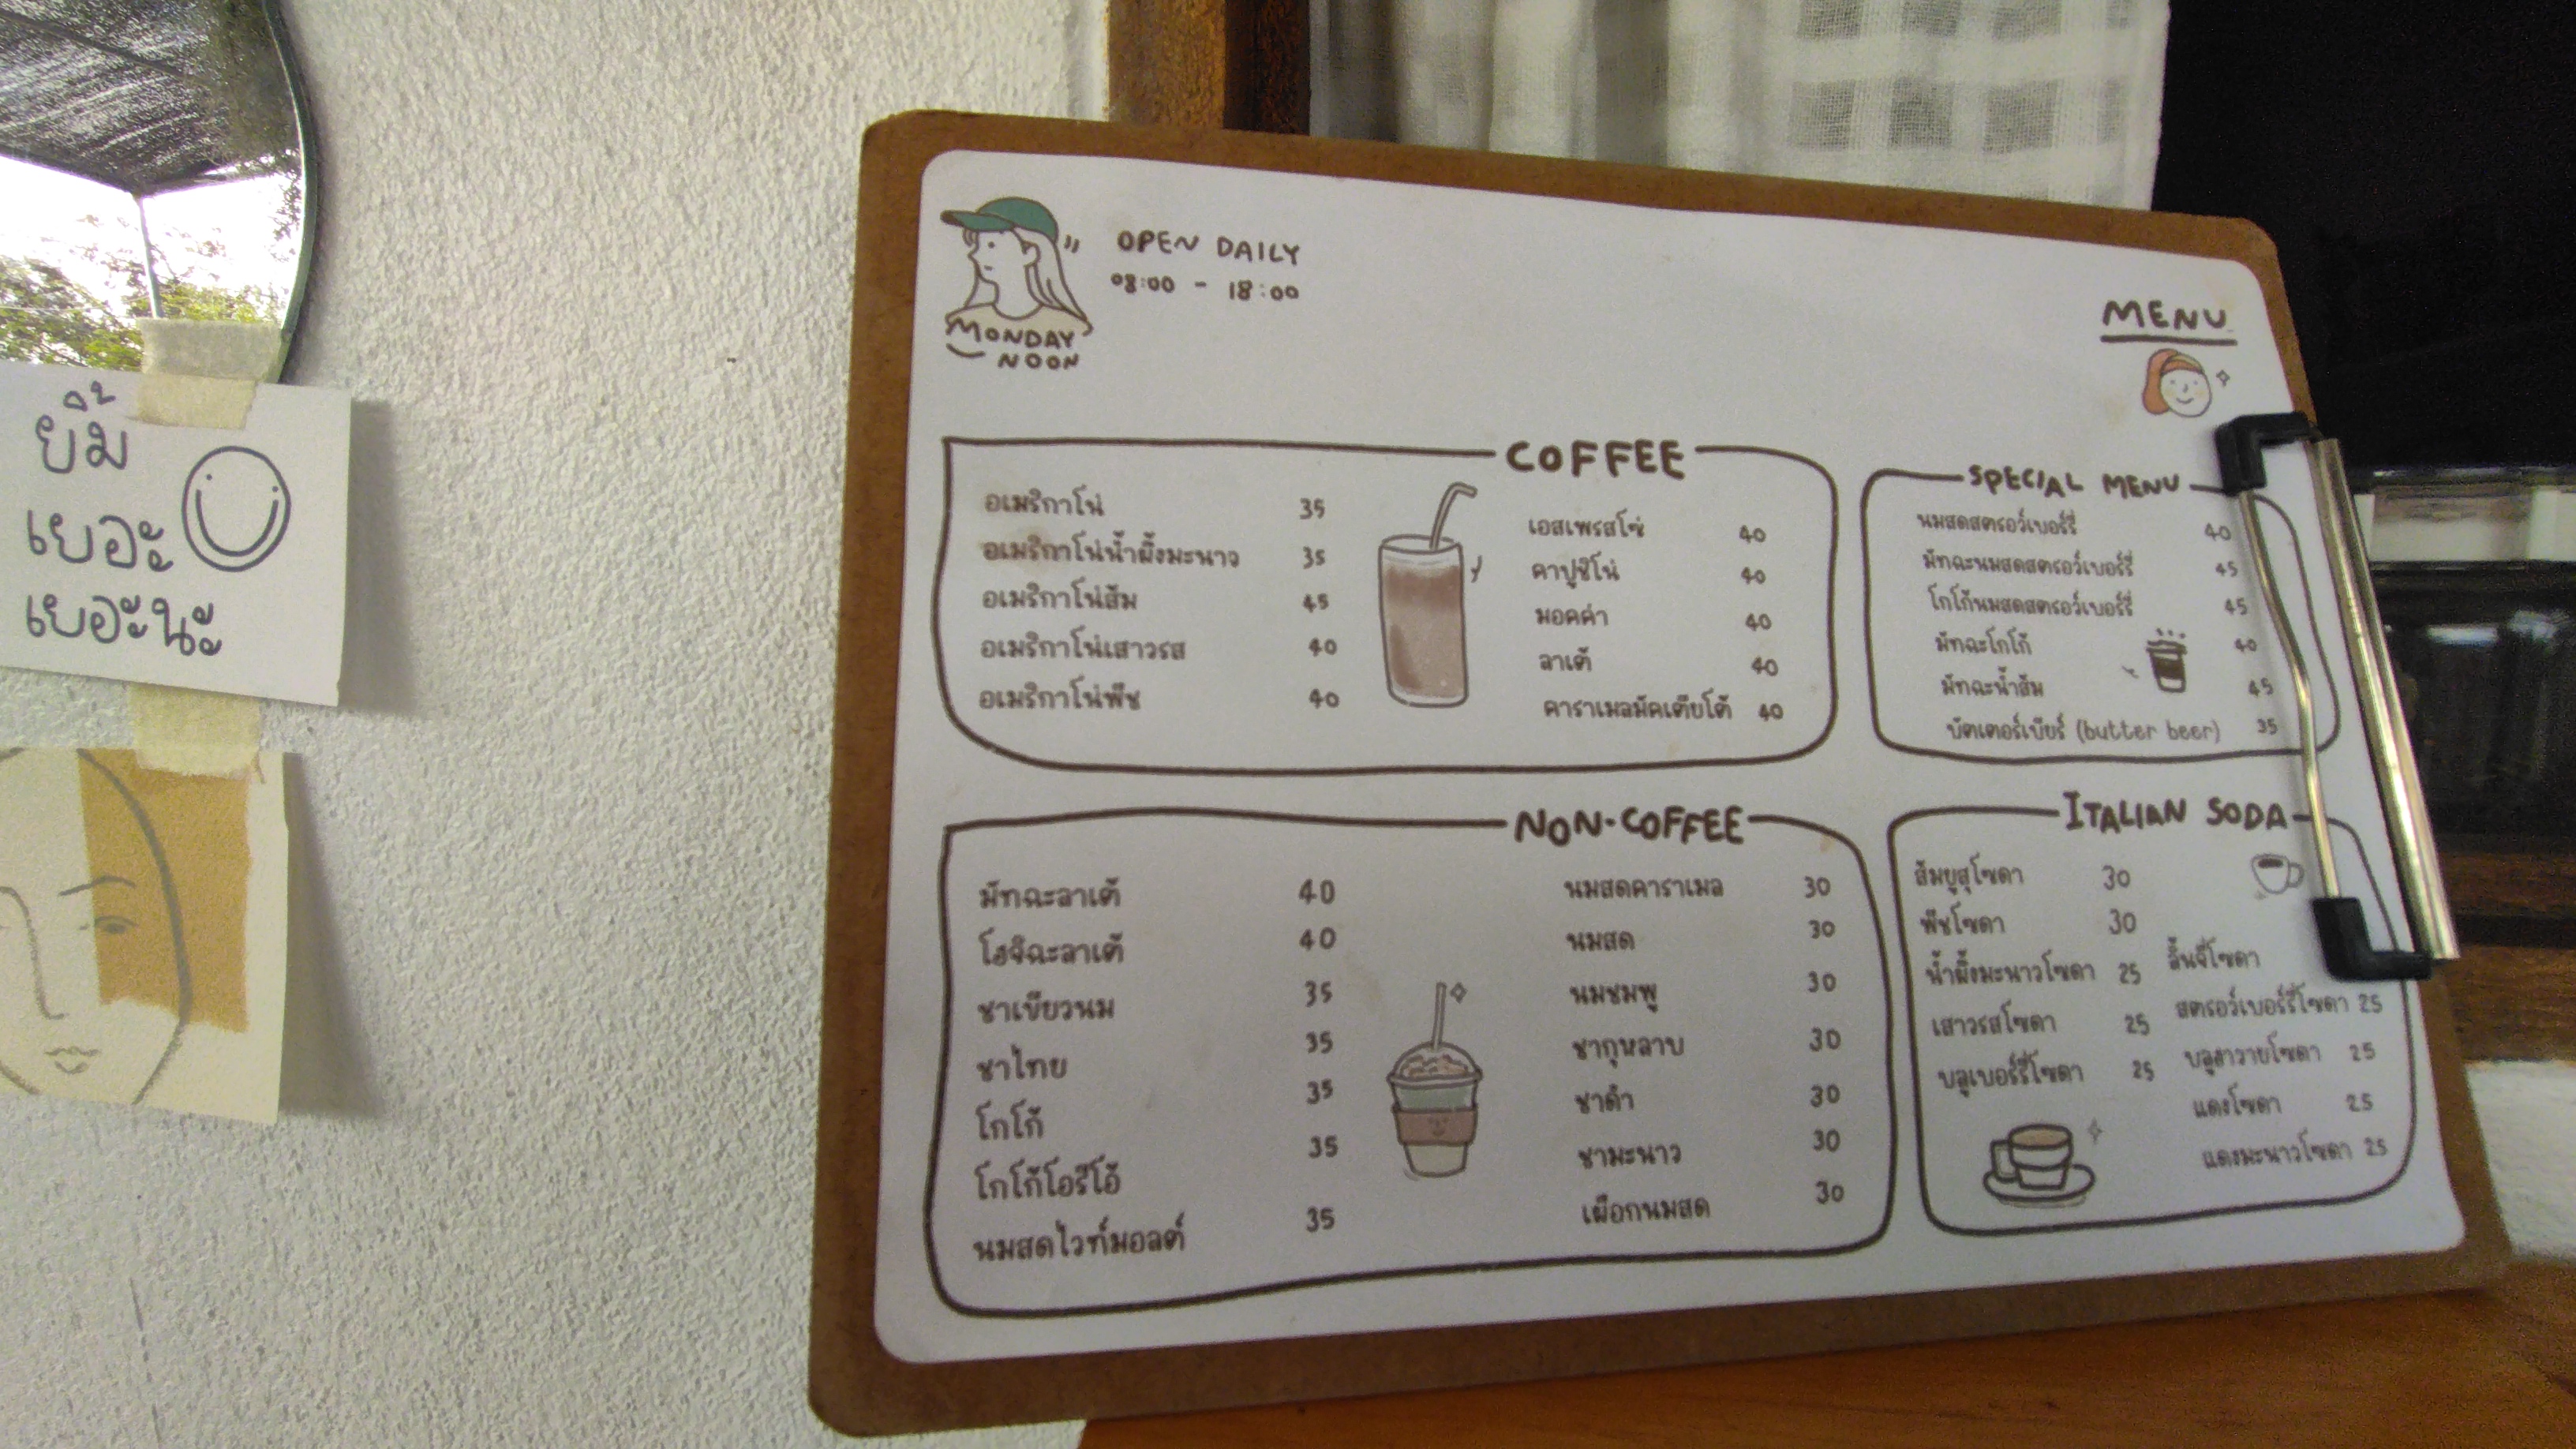 ยิ้ม
เยอะ
เยอะนะ
OPEN DAILY
08:00 - 18:00
MONDAY
NOON
MENU
COFFEE
อเมริกาโน่ 35
อเมริกาโน่น้ำผึ้งมะนาว 35
อเมริกาโน่ส้ม 45
อเมริกาโน่เสาวรส 40
อเมริกาโน่พีช 40
เอสเพรสโซ่ 40
คาปูชิโน่ 40
มอคค่า 40
ลาเต้ 40
คาราเมลมัคเคียโต้ 40
SPECIAL MENU
นมสดสตรอว์เบอร์รี่ 40
มัทฉะนมสดสตรอว์เบอร์รี่ 45
โกโก้นมสดสตรอว์เบอร์รี่ 45
มัทฉะโกโก้ 40
มัทฉะน้ำส้ม 45
บัตเตอร์เบียร์ (butter beer) 35
NON-COFFEE
มัทฉะลาเต้ 40
โฮจิฉะลาเต้ 40
ชาเขียวนม 35
ชาไทย 35
โกโก้ 35
โกโก้โอรีโอ้ 35
นมสดไวท์มอลต์ 35
นมสดคาราเมล 30
นมสด 30
นมชมพู 30
ชากุหลาบ 30
ชาดำ 30
ชามะนาว 30
เผือกนมสด 30
ITALIAN SODA
ส้มยูสุโซดา 30
พีชโซดา 30
น้ำผึ้งมะนาวโซดา 25
เสาวรสโซดา 25
บลูเบอร์รี่โซดา 25
ลิ้นจี่โซดา
สตรอว์เบอร์รี่โซดา 25
บลูฮาวายโซดา 25
แดงโซดา 25
แดงมะนาวโซดา 25